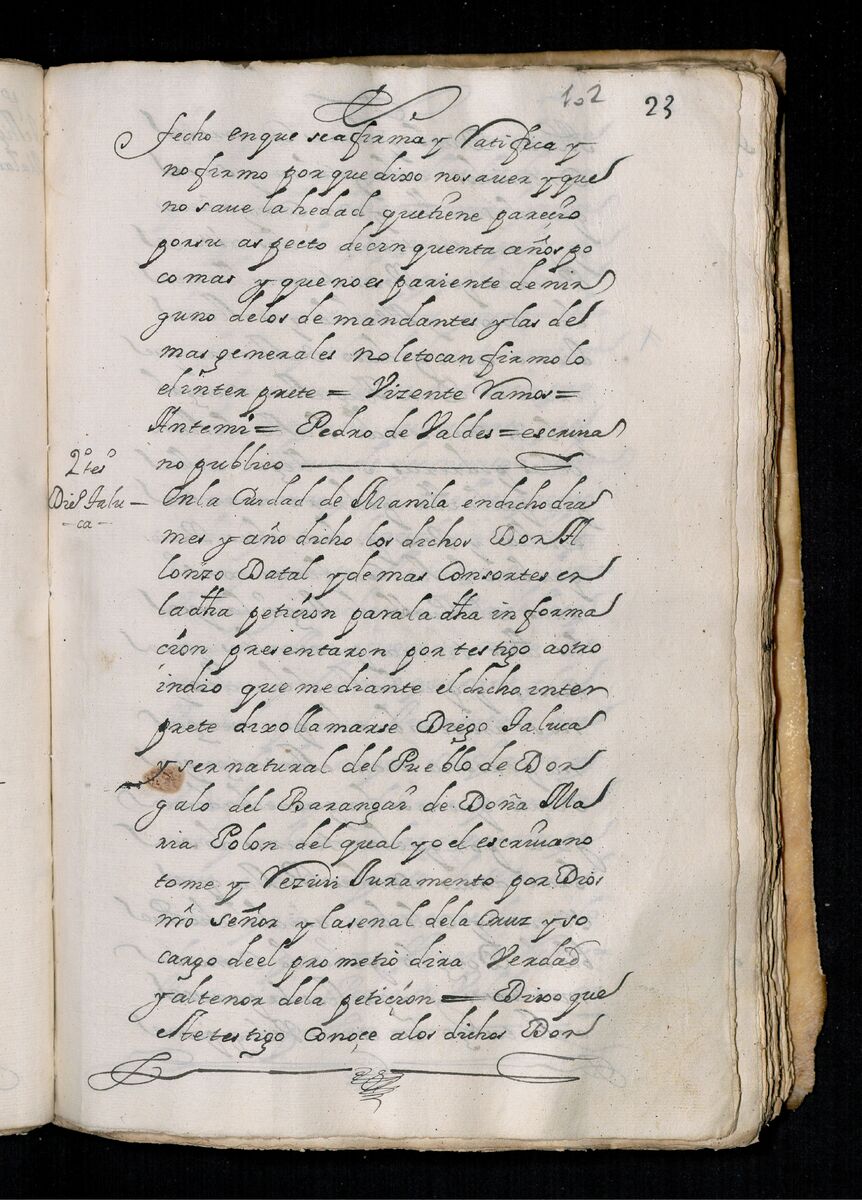 102 23
fecho en que se afirma y Ratifica y
no firmo porque dixo no saver y que
no save la hedad que tiene pareçio
por su aspecto de cinquenta años po
co mas y que no es pariente de nin
guno de los demandantes y las de
mas generales no le tocan firmolo
el interprete = Vizente Ramos =
Antemi = Pedro de Valdes = escriua
no publico
2º tesº
Diego Jalu
ca
En la Ciudad de Manila en dicho dia
mes y año dicho los dichos Don A
lonzo Datal y demas Consortes en
la dha petiçion para la dha informa
çion presentaron por testigo a otro
indio que mediante el dicho inter
prete dixo llamarse Diego Jaluca
y ser natural del Pueblo de Don
galo del Barangai de Doña Ma
ria Polon del qual yo el escriuano
tome y Reziui Juramento por Dios
nrõ señor y la senal de la Cruz y so
cargo de el prometio dira Verdad
y al tenor de la petiçion = Dixo que
este testigo Conoçe a los dichos Don